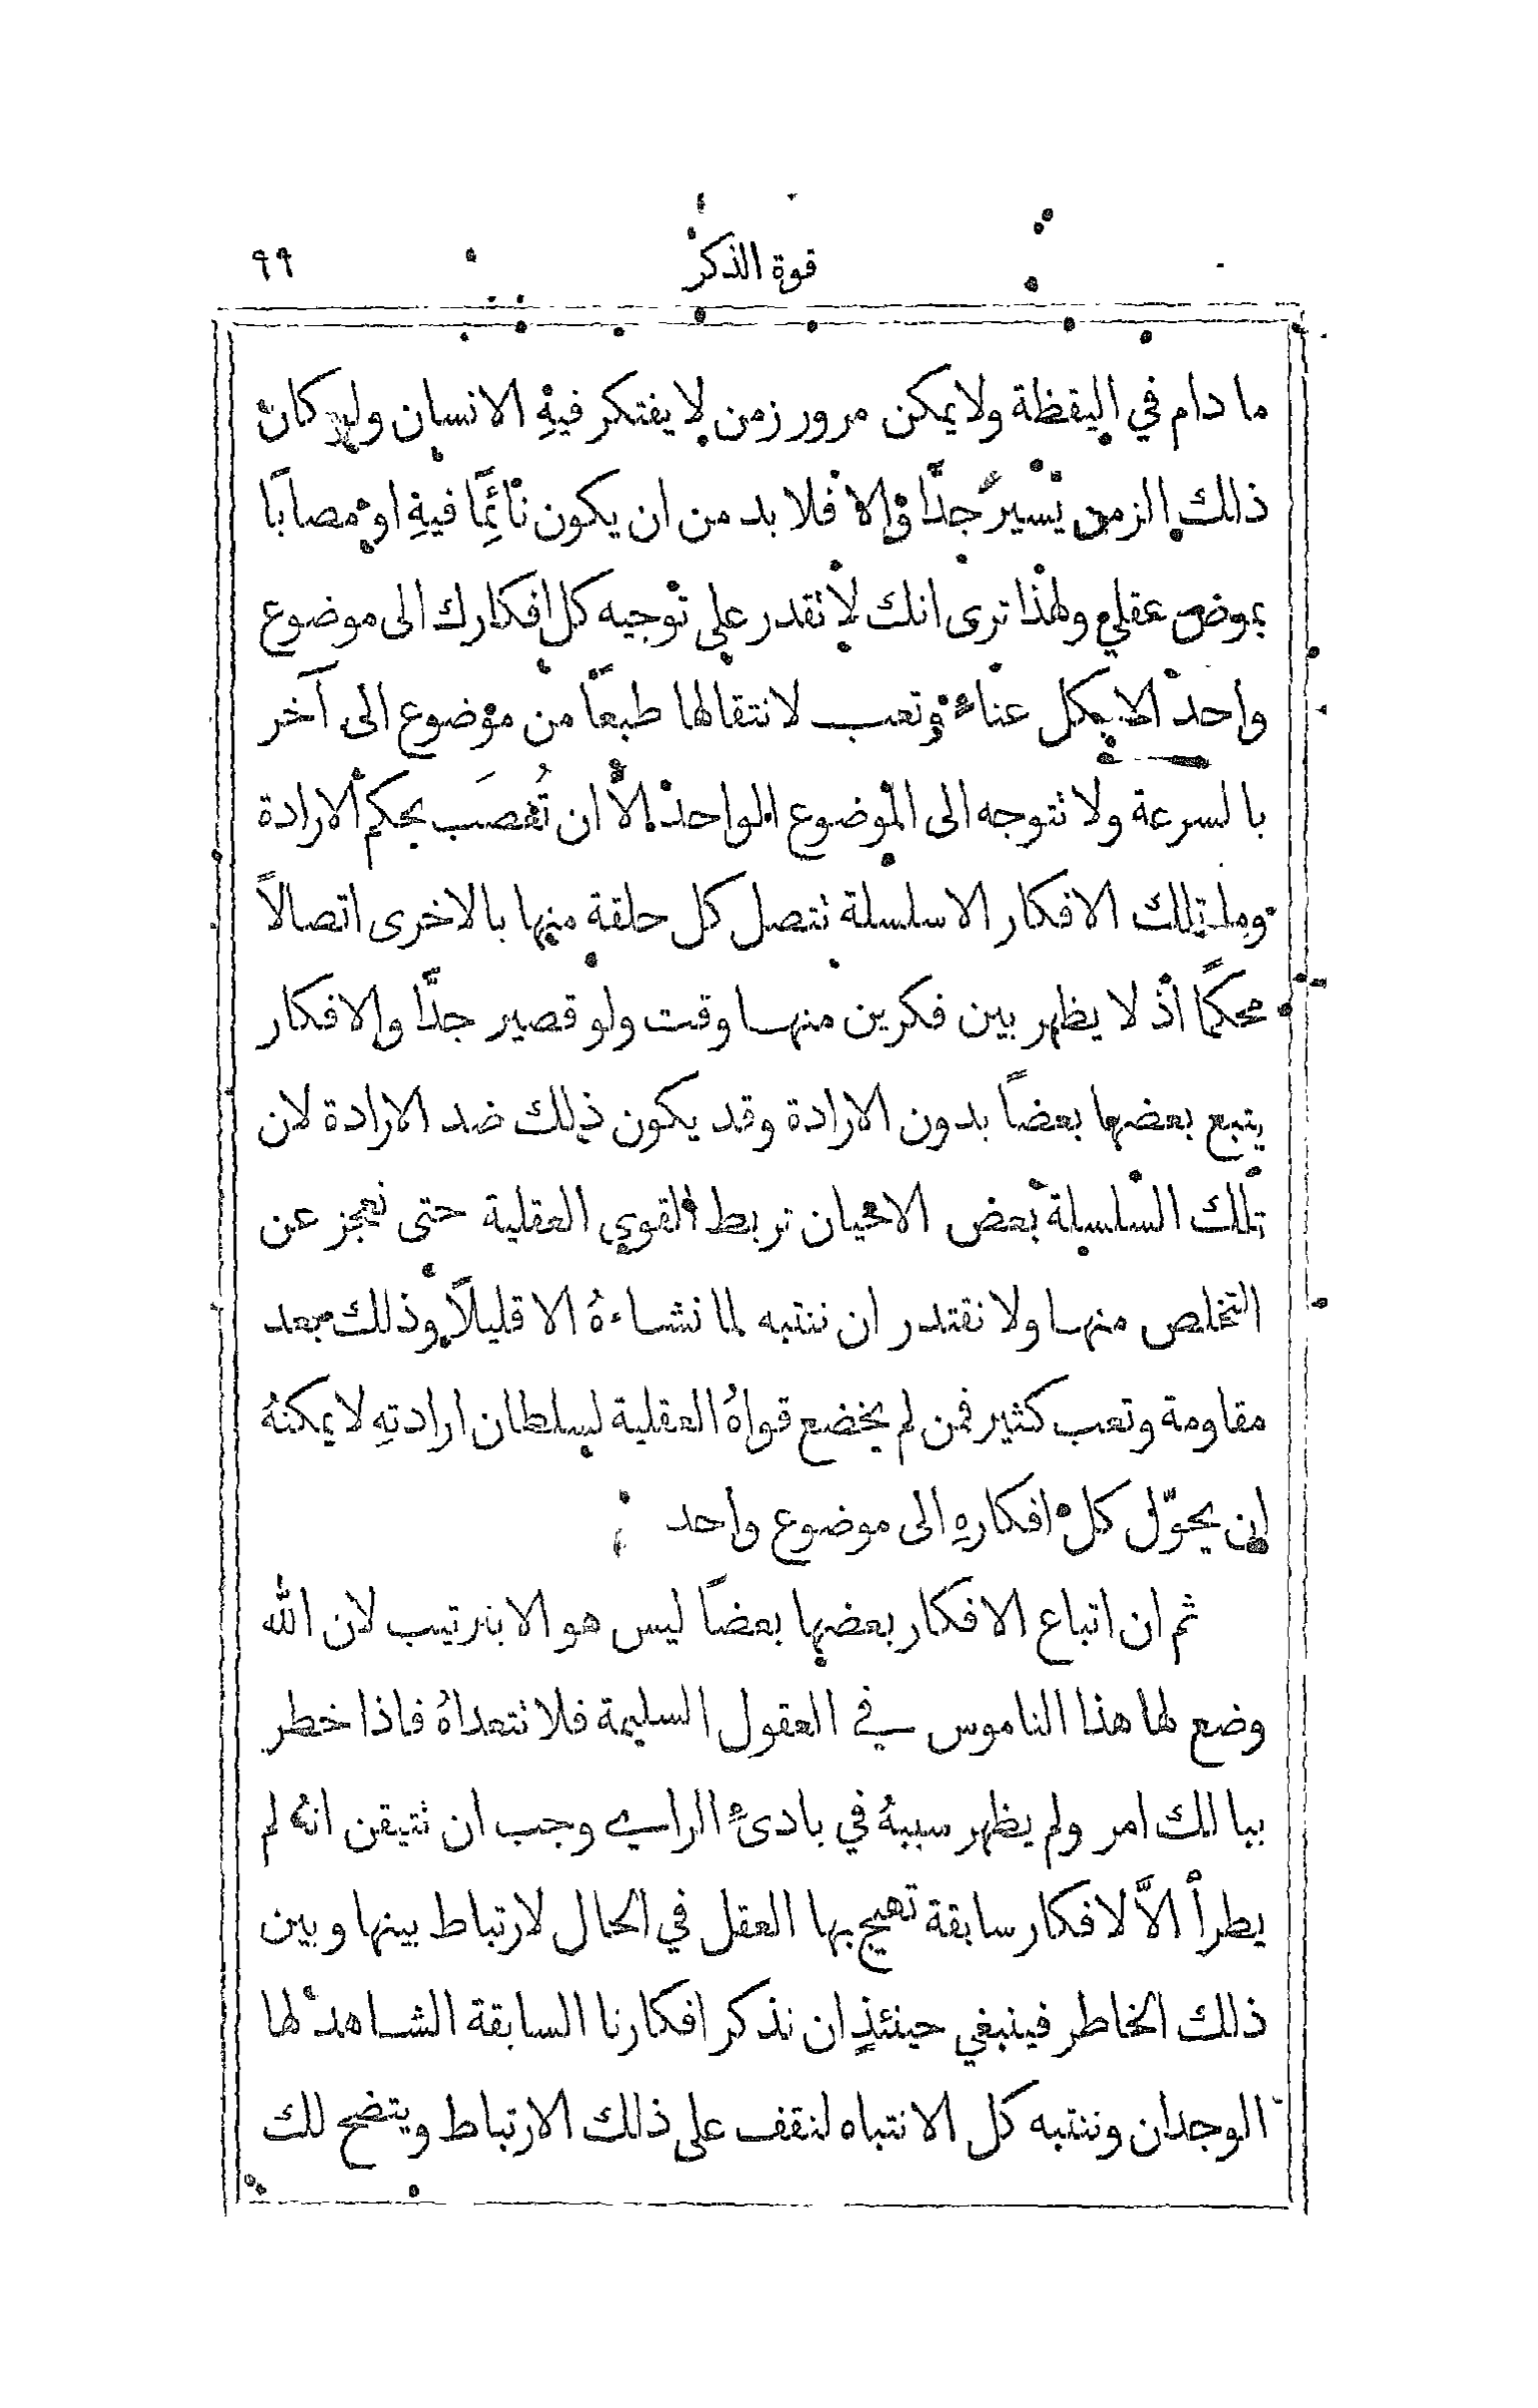 قوة الذكر ٩٩
ما دام في اليقظة ولا يمكن مرور زمن لا يفتكر فيهِ الانسان ولو كان
ذلك الزمن يسير جدًّا والا فلا بد من ان يكون نائِمًا فيهِ او مصابًا
بمرض عقلي ولهذا ترى انك لا تقدر على توجيه كل افكارك الى موضوع
واحد الا بكل عناء وتعب لانتقالها طبعًا من موضوع الى آخر
بالسرعة ولا تتوجه الى الموضوع الواحد الَّا ان تُغصَب بحكم الارادة
وما تلك الافكار الا سلسلة تتصل كل حلقة منها بالاخرى اتصالاً
محكمًا اذ لا يظهر بين فكرين منها وقت ولو قصير جدًّا والافكار
يتبع بعضها بعضاً بدون الارادة وقد يكون ذلك ضد الارادة لان
تلك السلسلة بعض الاحيان تربط القوى العقلية حتى نعجز عن
التخلص منها ولا نقتدر ان ننتبه لما نشاءهُ الا قليلاً وذلك بعد
مقاومة وتعب كثير فمن لم يخضع قواهُ العقلية لسلطان ارادتهِ لا يمكنهُ
ان يحوّل كل افكارهِ الى موضوع واحد
ثم ان اتباع الافكار بعضها بعضاً ليس هو الا بترتيب لان الله
وضع لها هذا الناموس في العقول السليمة فلا تتعداهُ فاذا خطر
ببالك امر ولم يظهر سببهُ في بادئ الراي وجب ان تتيقن انهُ لم
يطرأ الَّا لافكار سابقة تهيج بها العقل في الحال لارتباط بينها وبين
ذلك الخاطر فينبغي حينئذٍ ان نذكر افكارنا السابقة الشاهد لها
الوجدان وننتبه كل الانتباه لنقف على ذلك الارتباط ويتضح لك